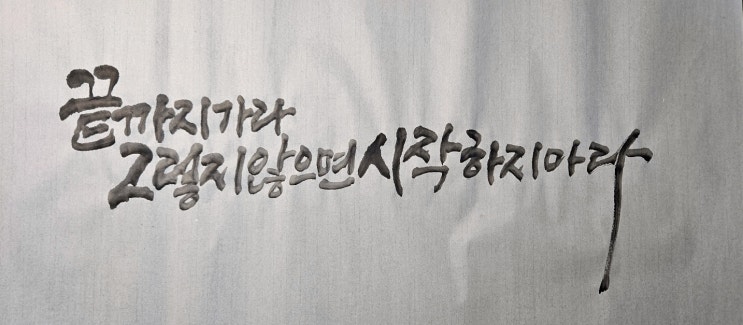 끝까지가라
그렇지않으면시작하지마라